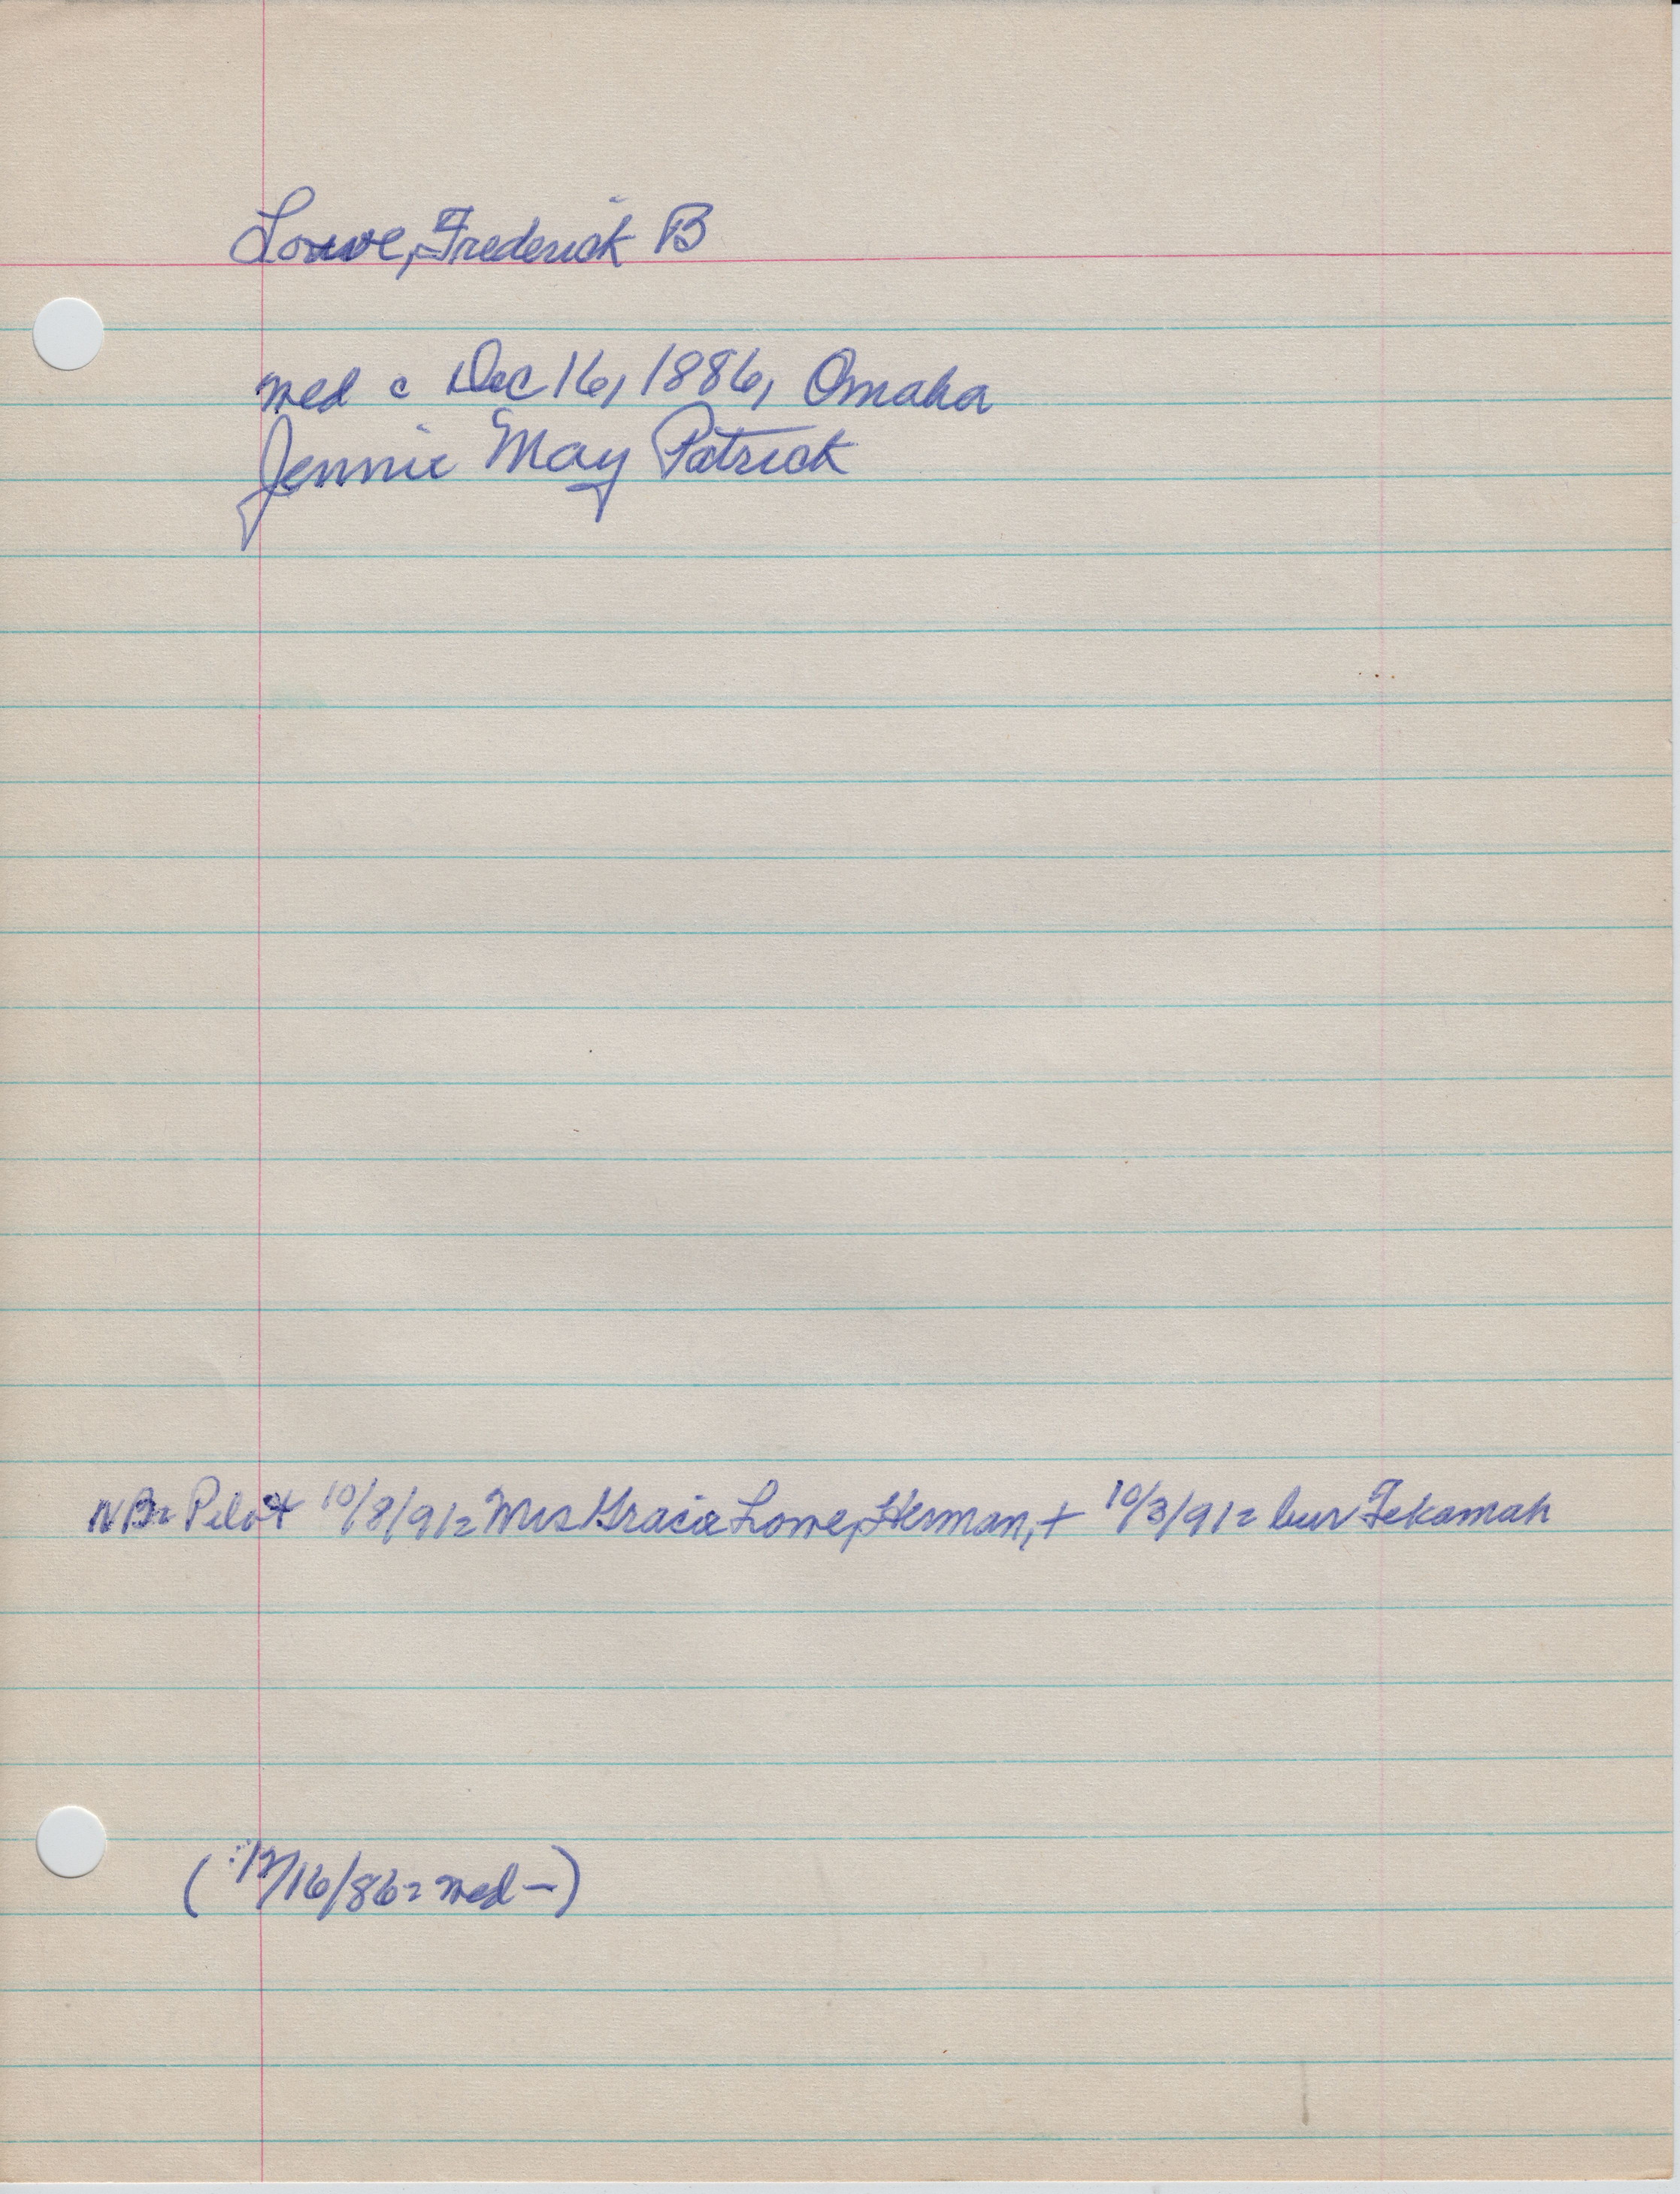 Lowe, Frederick B
wed c Dec 16, 1886, Omaha
Jennie May Patrick
Pilot 10/8/91= Mrs Gracie Lowe, Herman, + 10/3/91= bur Tekamah
(12/16/86= wed -)